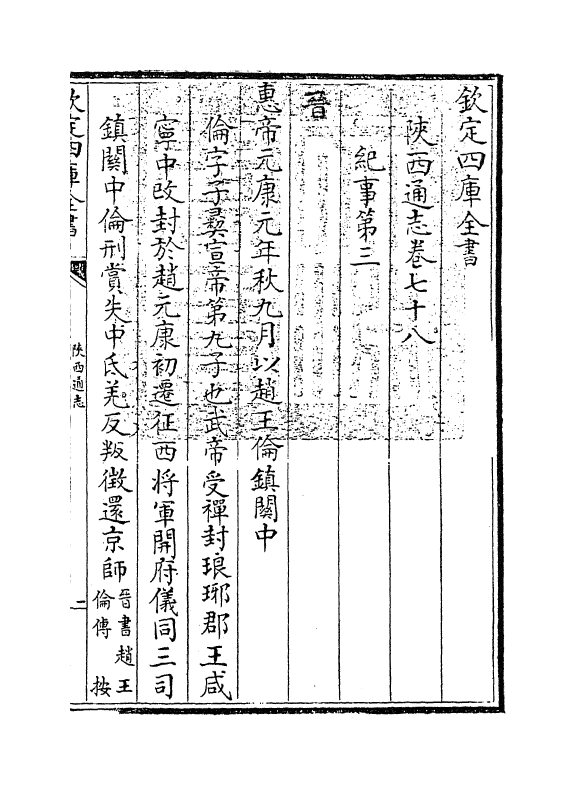 欽定四庫全書
陜西通志卷七十八
紀事第三
晉
惠帝元康元年秋九月以趙王倫鎮關中
倫字子彛宣帝第九子也武帝受禪封琅琊郡王咸
寧中改封於趙元康初遷征西將軍開府儀同三司
鎮關中倫刑賞失中氐羌反叛徵還京師
晉書趙王
倫傳 按
欽定四庫全書
陜西通志